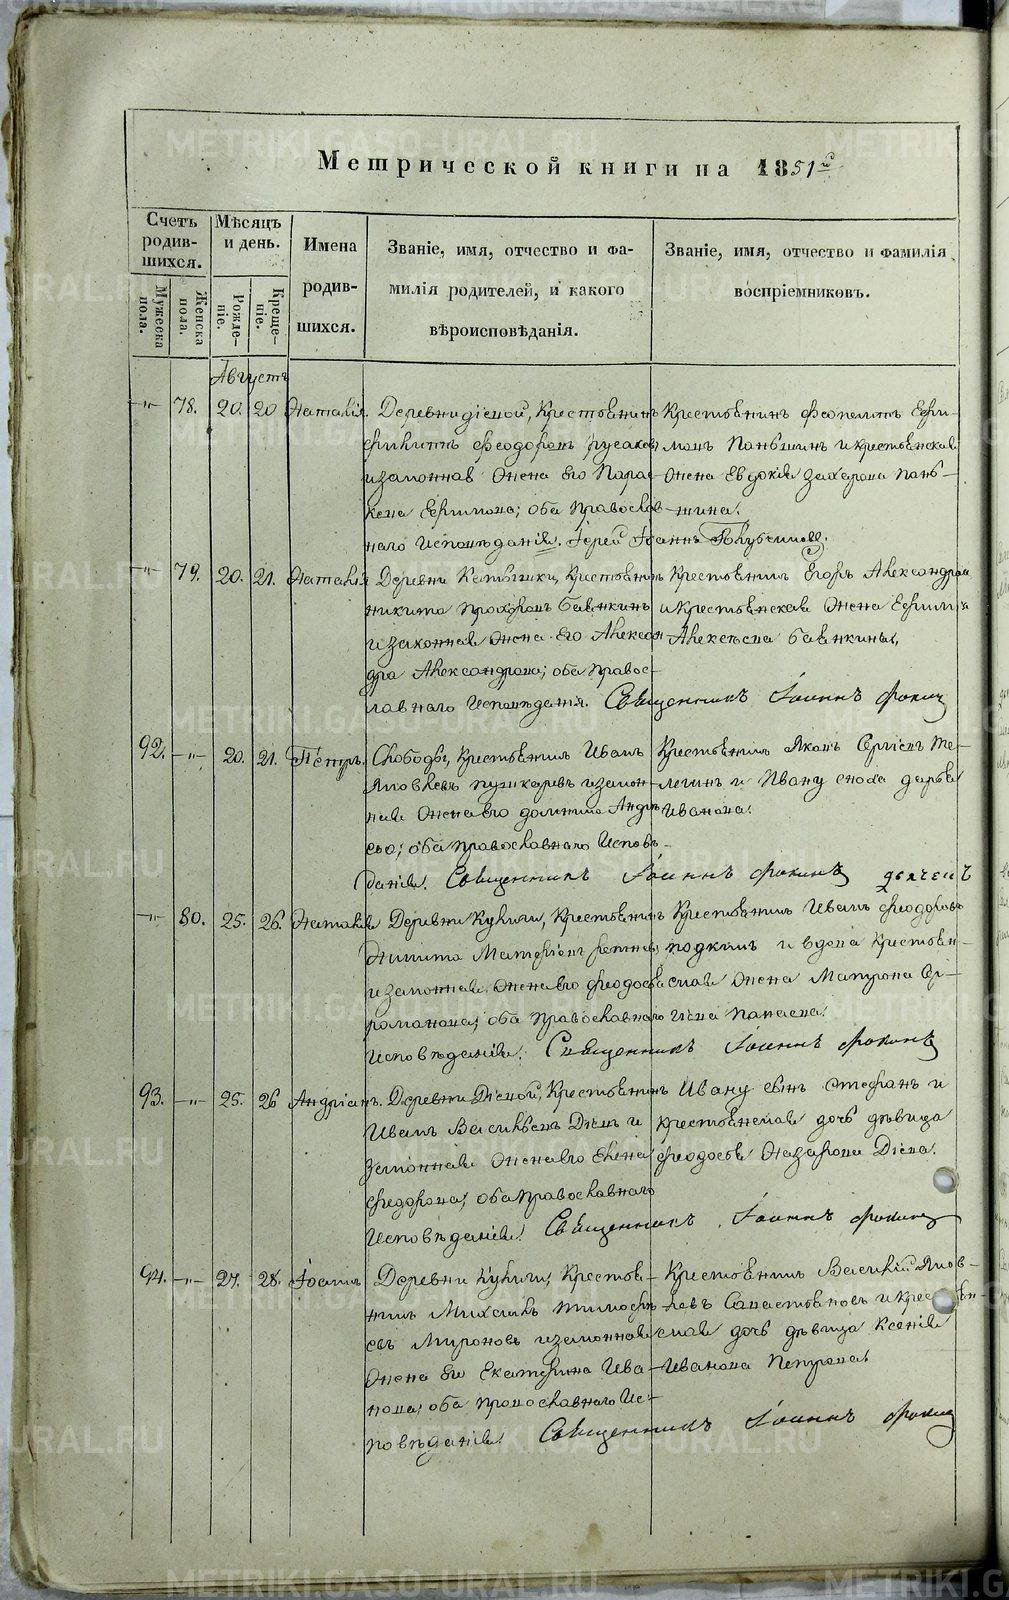 Метрической книги на 1851й
Счетъ родив-шихся.
Мужеска пола.
Женска пола.
Мѣсяцъ и день.
Рожде-ніе.
Креще-ніе.
Имена
родив-
шихся.
Званіе, имя, отчество и фа-
милія родителей, и какого
вѣроисповѣданія.
Званіе, имя, отчество и фамилія
воспріемниковъ.
Августъ
-"- 78. 20. 20 Наталія.
Деревни Діевой, Крестьянинъ
Филиппъ Феодоровъ Русаковъ
и законная Жена его Парас-
кева Ефимова; оба Православ-
наго Исповѣданія. Іерей Іоаннъ
Крестьянинъ Феопемптъ Ефи-
мовъ Паньшинъ и крестьянская
Жена Евдокія Захарова Пань-
шина.
-"- 79. 20. 21. Наталія
Деревни Крестьянинъ
Никита Прохоровъ Бавыкинъ
и законная Жена Его Алексан
дра Александрова; оба Право-
славнаго Исповѣданія. Священникъ Іоаннъ Фокинъ
Крестьянинъ Егоръ Александровъ
и Крестьянская Жена Ефимія
Алексѣева Бавыкины,
92. -"- 20. 21. Петръ.
Слободы, Крестьянинъ Иванъ
Яковлевъ Пушкаревъ и закон-
ная Жена его Домника Андре
ева; оба Православнаго Исповѣ-
данія. Священникъ Іоаннъ Фокинъ
Крестьянинъ Яковъ Сергіевъ Те-
легинъ и Ивану сноха Дарья
Иванова.
-"- 80. 25. 26. Наталія
Деревни Кулиги, Крестьянинъ
Никита Матфіевъ
и законная Жена его Феодосія
Романова; оба Православнаго
Исповѣданія. Священникъ Іоаннъ Фокинъ
Крестьянинъ Иванъ Феодоровъ
и вдова Крестьян-
ская Жена Матрона
93. -"- 25. 26 Андріанъ.
Деревни Діевой, Крестьянинъ
Иванъ Васильевъ Діевъ и
законная Жена его Елена
Федорова; оба Православнаго
Исповѣданія. Священникъ Іоаннъ Фокинъ
Ивану сынъ Стефанъ и
Крестьянская дочь дѣвица
Феодосья Назарова Діева.
94. -"- 27. 28. Іоаннъ
Деревни Кулиги, Крестья-
нинъ Михаилъ Тимофѣ
евъ Мироновъ и законная
Жена его Екатерина Ива-
нова; оба Православнаго Ис-
повѣданія. Священникъ Іоаннъ Фокинъ
Крестьянинъ Василій Яков-
левъ и Крестьян-
ская дочь дѣвица Ксенія
Иванова Петрова.
METRIKI.GASO-URAL.RU